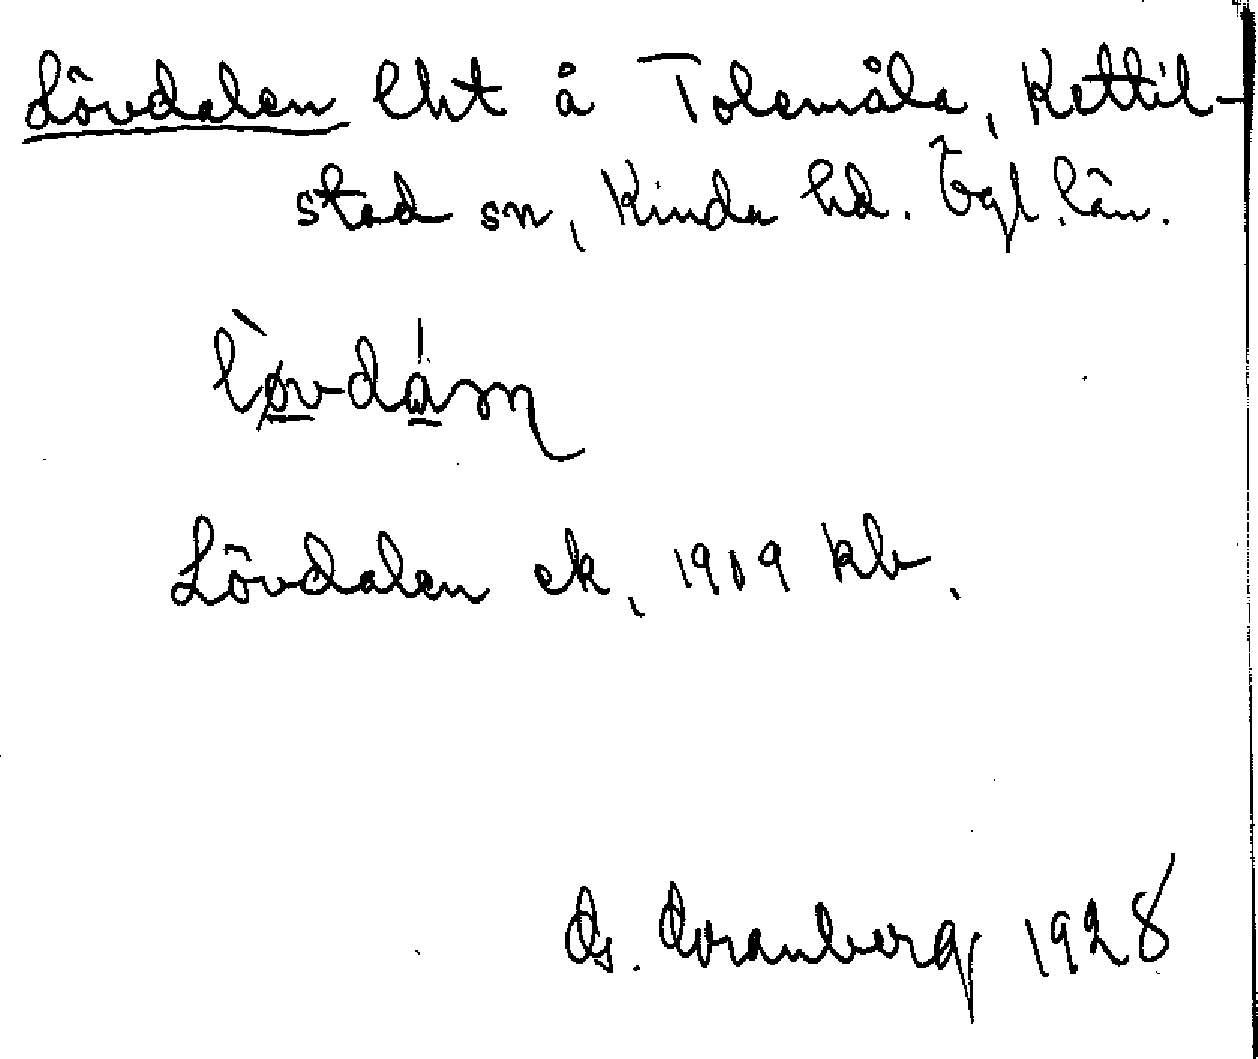 Lövdalen lht å Tolemåla, Kettil-
stad sn, Kinda hd. Ögl. län.
Lövdalen ek, 1919 kb.
G. Granberg 1928